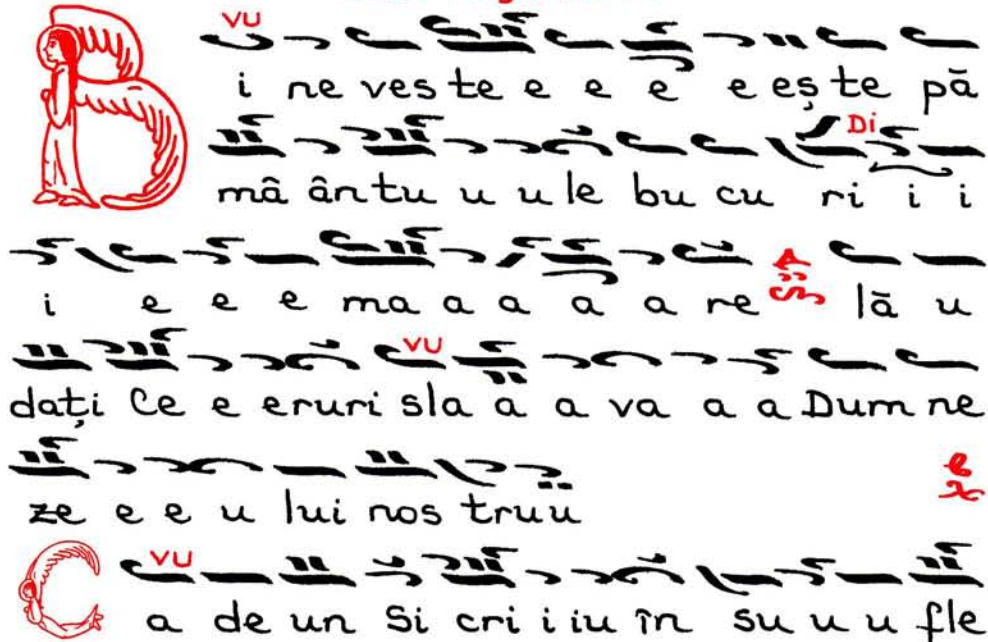 VU
B i ne ves te e e e e eș te pă
Di
mâ ân tu u u le bu cu ri i i
i e e e ma a a a a re lă u
VU
dați Ce e eruri sla a a va a a Dum ne
ze e e u lui nos tru u
VU
C a de un Si cri i iu în su u u fle